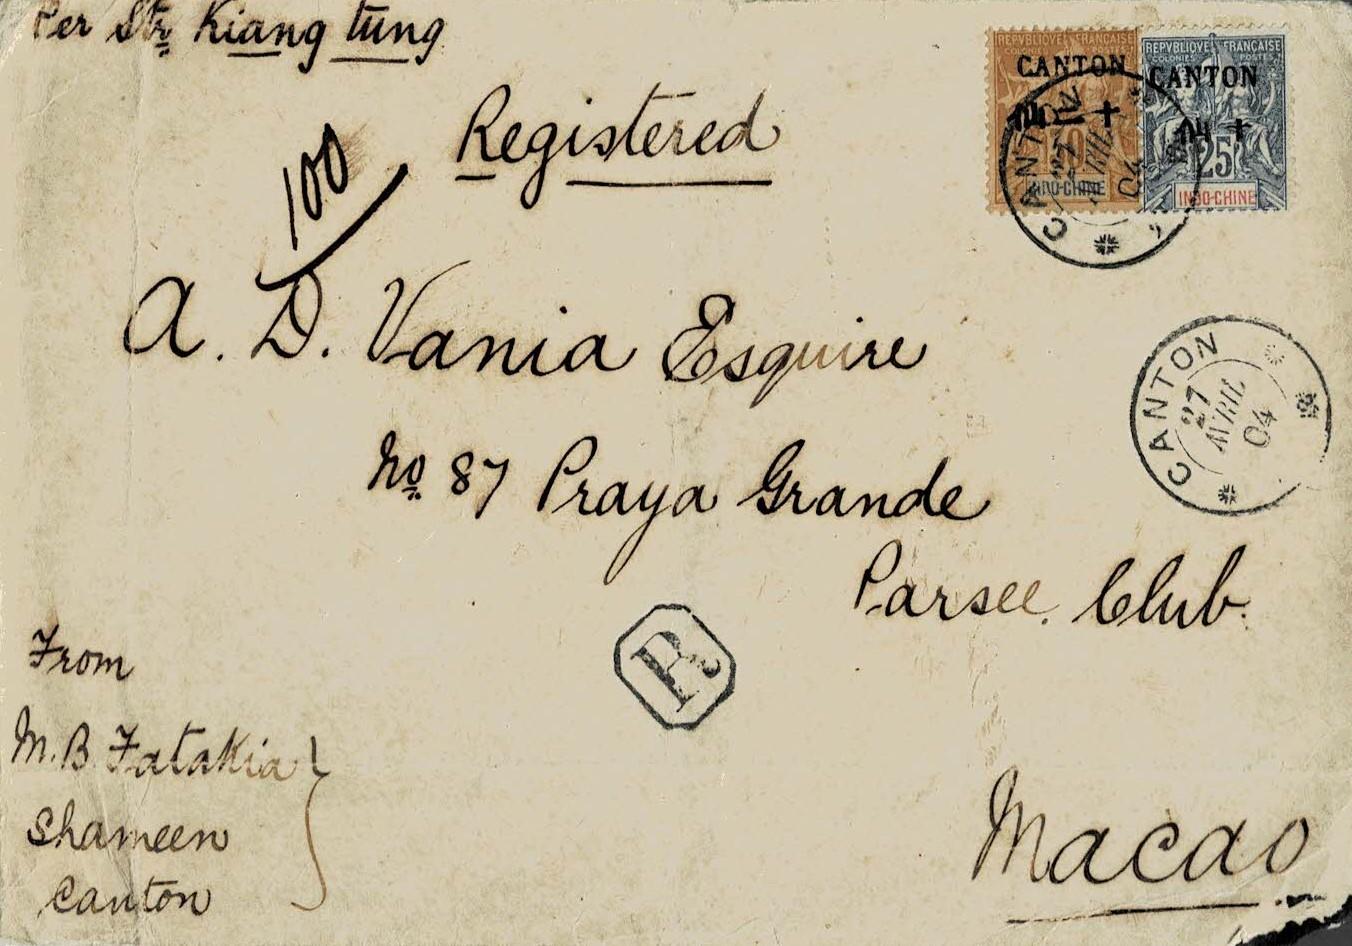 Per Str. Kiang tung
Registered
100
A. D. Vania Esquire
No. 87 Praya Grande
Parsee Club.
Macao
From
M. B Fatakia
Shameen
Canton
R
REPVBLIQVE FRANÇAISE
COLONIES POSTES
CANTON
INDO-CHINE
REPVBLIQVE FRANÇAISE
COLONIES POSTES
CANTON
25
INDO-CHINE
CANTON
27
AVRIL
04
CANTON
27
AVRIL
04